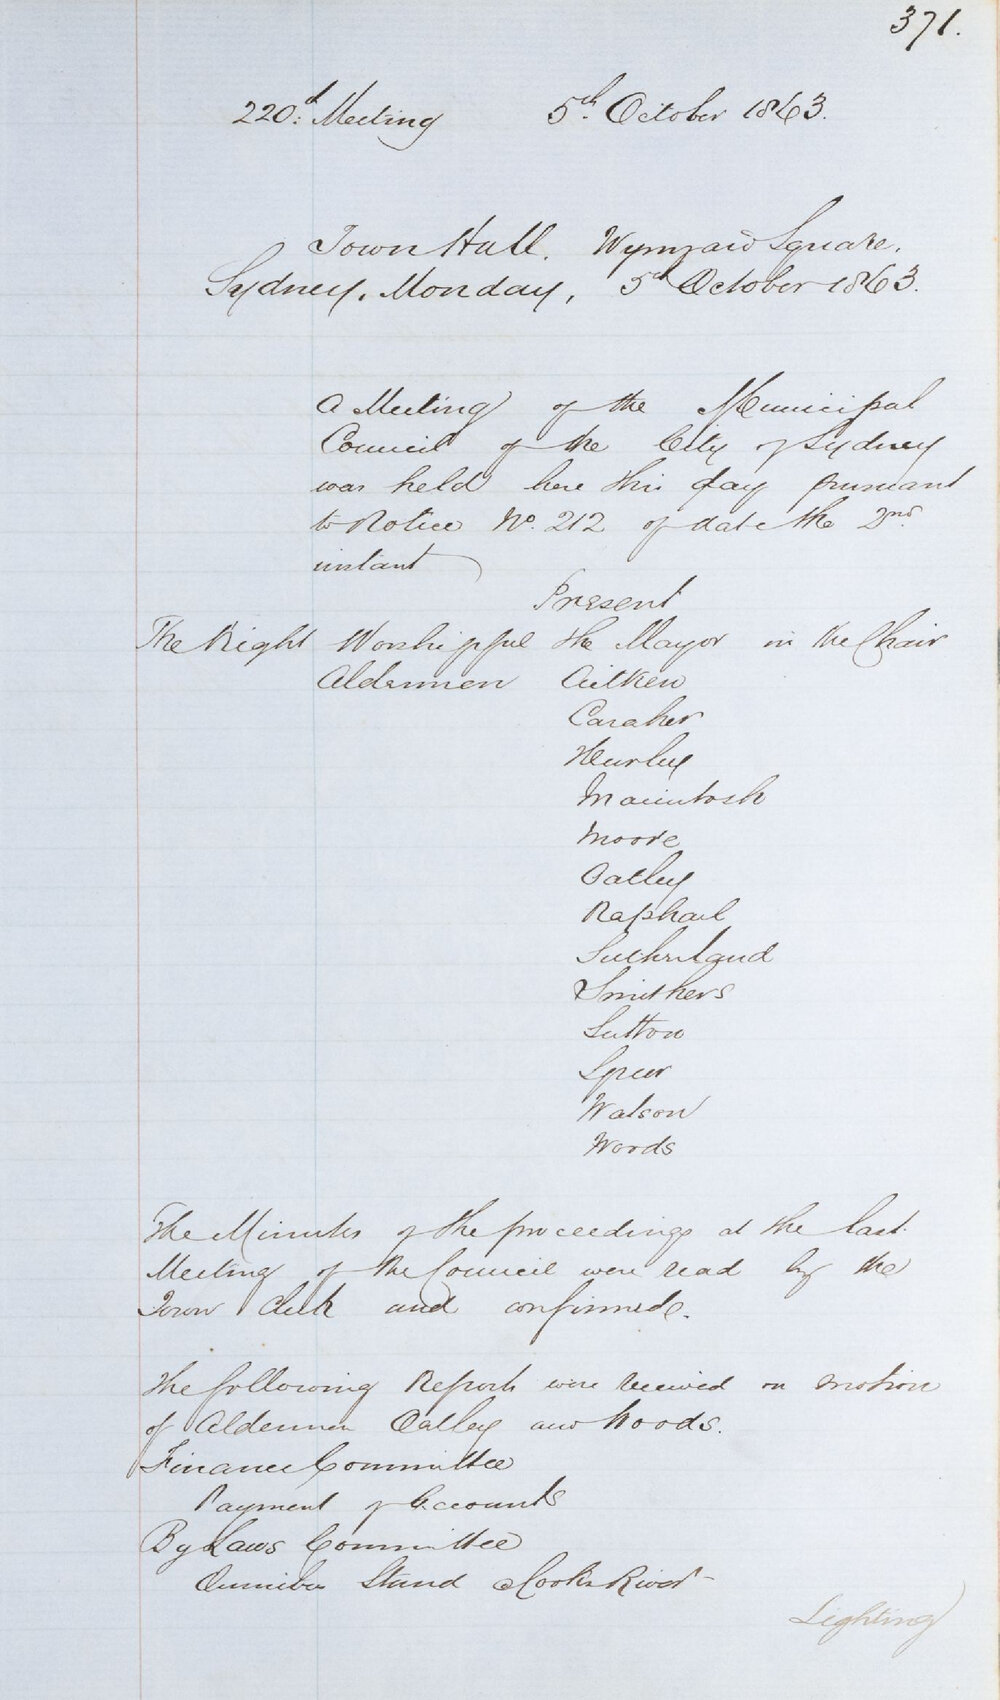 371.
220.d Meeting 5th October 1863.
Town Hall. Wynyard Square.
Sydney, Monday, 5th October 1863.
A Meeting of the Municipal
Council of the City of Sydney
was held here this day pursuant
to Notice No. 212 of date the 2nd
instant
Present
The Right Worshipful the Mayor in the Chair
Aldermen Aitken
Caraher
Hurley
Macintosh
Moore
Oatley
Raphael
Sutherland
Smithers
Sutton
Speer
Watson
Woods
The Minutes of the proceedings at the last
Meeting of the Council were read by the
Town Clerk and confirmed.
The following Reports were received on motion
of Aldermen Oatley and Woods.
Finance Committee
Payment of Accounts
By Laws Committee
Omnibus Stand Cooks River
Lighting